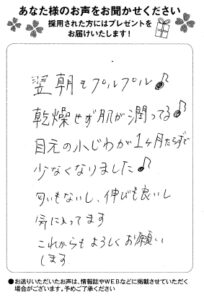 あなた様のお声をお聞かせください
採用された方にはプレゼントを
お届けいたします!
翌朝もプルプル♪
乾燥せず肌が潤ってる♪
目元の小じわが1ヶ月たらずで
少なくなりました♪
匂いもないし、伸びも良いし
気に入ってます
これからもよろしくお願い
します
●お送りいただいたお声は、情報誌やWEBなどに掲載させていただく
場合がございます。予めご了承ください